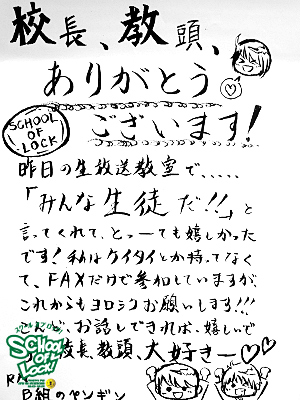 校長、教頭、
ありがとう
ございます!
SCHOOL
OF
LOCK
昨日の生放送教室で、、、、、
「みんな生徒だ!!」と
言ってくれて、とっーても嬉しかった
です!私はケイタイとか持ってなく
て、FAXだけで参加していますが、
これからもヨロシクお願いします!!!
お話しできれば、嬉しいで
校長、教頭、大好きー♡♡
SCHOOL
OF
LOCK!
B組のペンギン